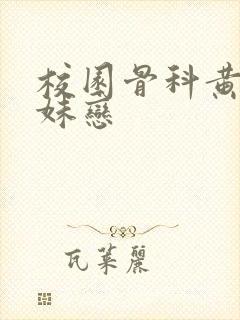 校園骨科黃
妹戀
瓦萊麗